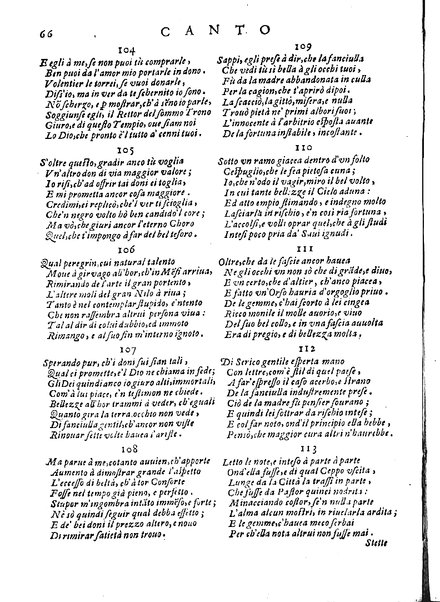 66 CANTO
104
E egli à me, se non puoi tù comprarle,
Ben puoi da l'amor mio portarle in dono.
Volentier le torrei, se vuoi donarle,
Diss'io, ma in ver da te schernito io sono.
Nõ scherzo, e p mostrar, ch'à sẽno io parle,
Soggiunse egli, il Rettor del sommo Trono
Giuro, e di questo Tempio, oue siam noi
Lo Dio, che pronto è'l tutto à cenni tuoi.
105
S'oltre questo, gradir anco tù voglia
Vn'altro don di via maggior valore;
Io risi, ch'ad offrir tai doni ei toglia,
E mi prometta ancor cosa maggiore.
Credimi, ei replicò, che'l ver ti scioglia,
Che'n negro volto hò ben candido'l core;
Ma vò, che giuri ancor l'eterno Choro
Quel, che t'impongo à far del bel tesoro.
106
Qual peregrin, cui natural talento
Moue à gir vago alhor, ch'in Mẽfi arriua,
Rimirando de l'arte il gran portento,
L'altere moli del gran Nilo à riua;
Tanto è nel contemplar stupido, e'ntento
Che non rassembra altrui persona viua:
Tal al dir di colui dubbio, ed immoto
Rimango, e al suo fin m'interno ignoto.
107
Sperando pur, ch'i doni sui sian tali,
Qual ei promette, e'l Dio ne chiama in sede;
Gli Dei quindi anco io giuro alti, immortali,
Com'à lui piace, e'n testimon ne chiede.
Bellezze alhor trammi à veder, ch'eguali
Quanto gira la terra, occhio non vede,
Di fanciulla gentil, ch'ancor non viste
Rinouar sette volte hauea l'ariste.
108
Ma parue à me, cotanto auuien, ch'apporte
Aumento à dimostrar grande l'aspetto
L'eccesso di beltà, ch'à tor Conforte
Fosse nel tempo già pieno, e perfetto.
Stupor m'ingombra intãto immẽso, e forte;
Nè sò quindi seguir qual debba effetto;
E de' bei doni il prezzo altero, e nouo
Di rimirar satietà non trouo.
109
Sappi, egli prese à dir, che la fanciulla
Che vedi tù sì bella à gli occhi tuoi,
Fù da la madre abbandonata in culla
Per la cagion, che t'aprirò dipoi.
La scacciò, la gittò, misera, e nulla
Trouò pietà ne' primi albori suoi;
L'innocente à l'arbitrio esposta auuolta
De la fortuna instabile, incostante.
110
Sotto vn ramo giacea dentro d'vn folto
Cespuglio, che le fea pietosa cuna;
Io, che n'odo il vagir, miro il bel volto,
In cui tante bellezze il Cielo aduna:
Ed atto empio stimando, e indegno molto
Lasciarla in rischio, e'n così ria fortuna,
L'accolsi, e volli oprar quel, che à gli studi
Intesi poco pria da' Saui ignudi.
111
Oltre, che da le fascie ancor hauea
Ne gli occhi vn non sò che di grãde, e diuo,
E vn certo, che d'altier, ch'anco piacea,
E fatto vn'Orso hauria d'orgoglio priuo.
De le gemme, c'hai scorto à lei cingea
Ricco monile il molle auorio viuo
Del suo bel collo, e in vna fascia auuolta
Era di pregio, e di beltà non molta.
112
Di Serico gentile esperta mano
Con lettre, com'è stil di quel paese,
A far'espresso il caso acerbo, e strano
De la fanciulla industremente prese.
Ciò de la madre fù pensier sourano;
E quindi lei sottrar da rischio intese;
E col far noto, ond'il principio ella hebbe,
Pensò, che maggior cura altri n'haurebbe.
113
Letto le note, e inteso à parte à parte
Ond'ella fusse, e di qual Ceppo vscita,
Lunge da la Città la traggo in parte,
Che fusse da Pastor quinci nodrita:
Minacciando costor, se'n nulla parte
L'alma alcun mostri, in riuelarla ardita;
E le gemme, c'hauea meco serbai
Per ch'ella nota altrui non fusse mai.
Stette